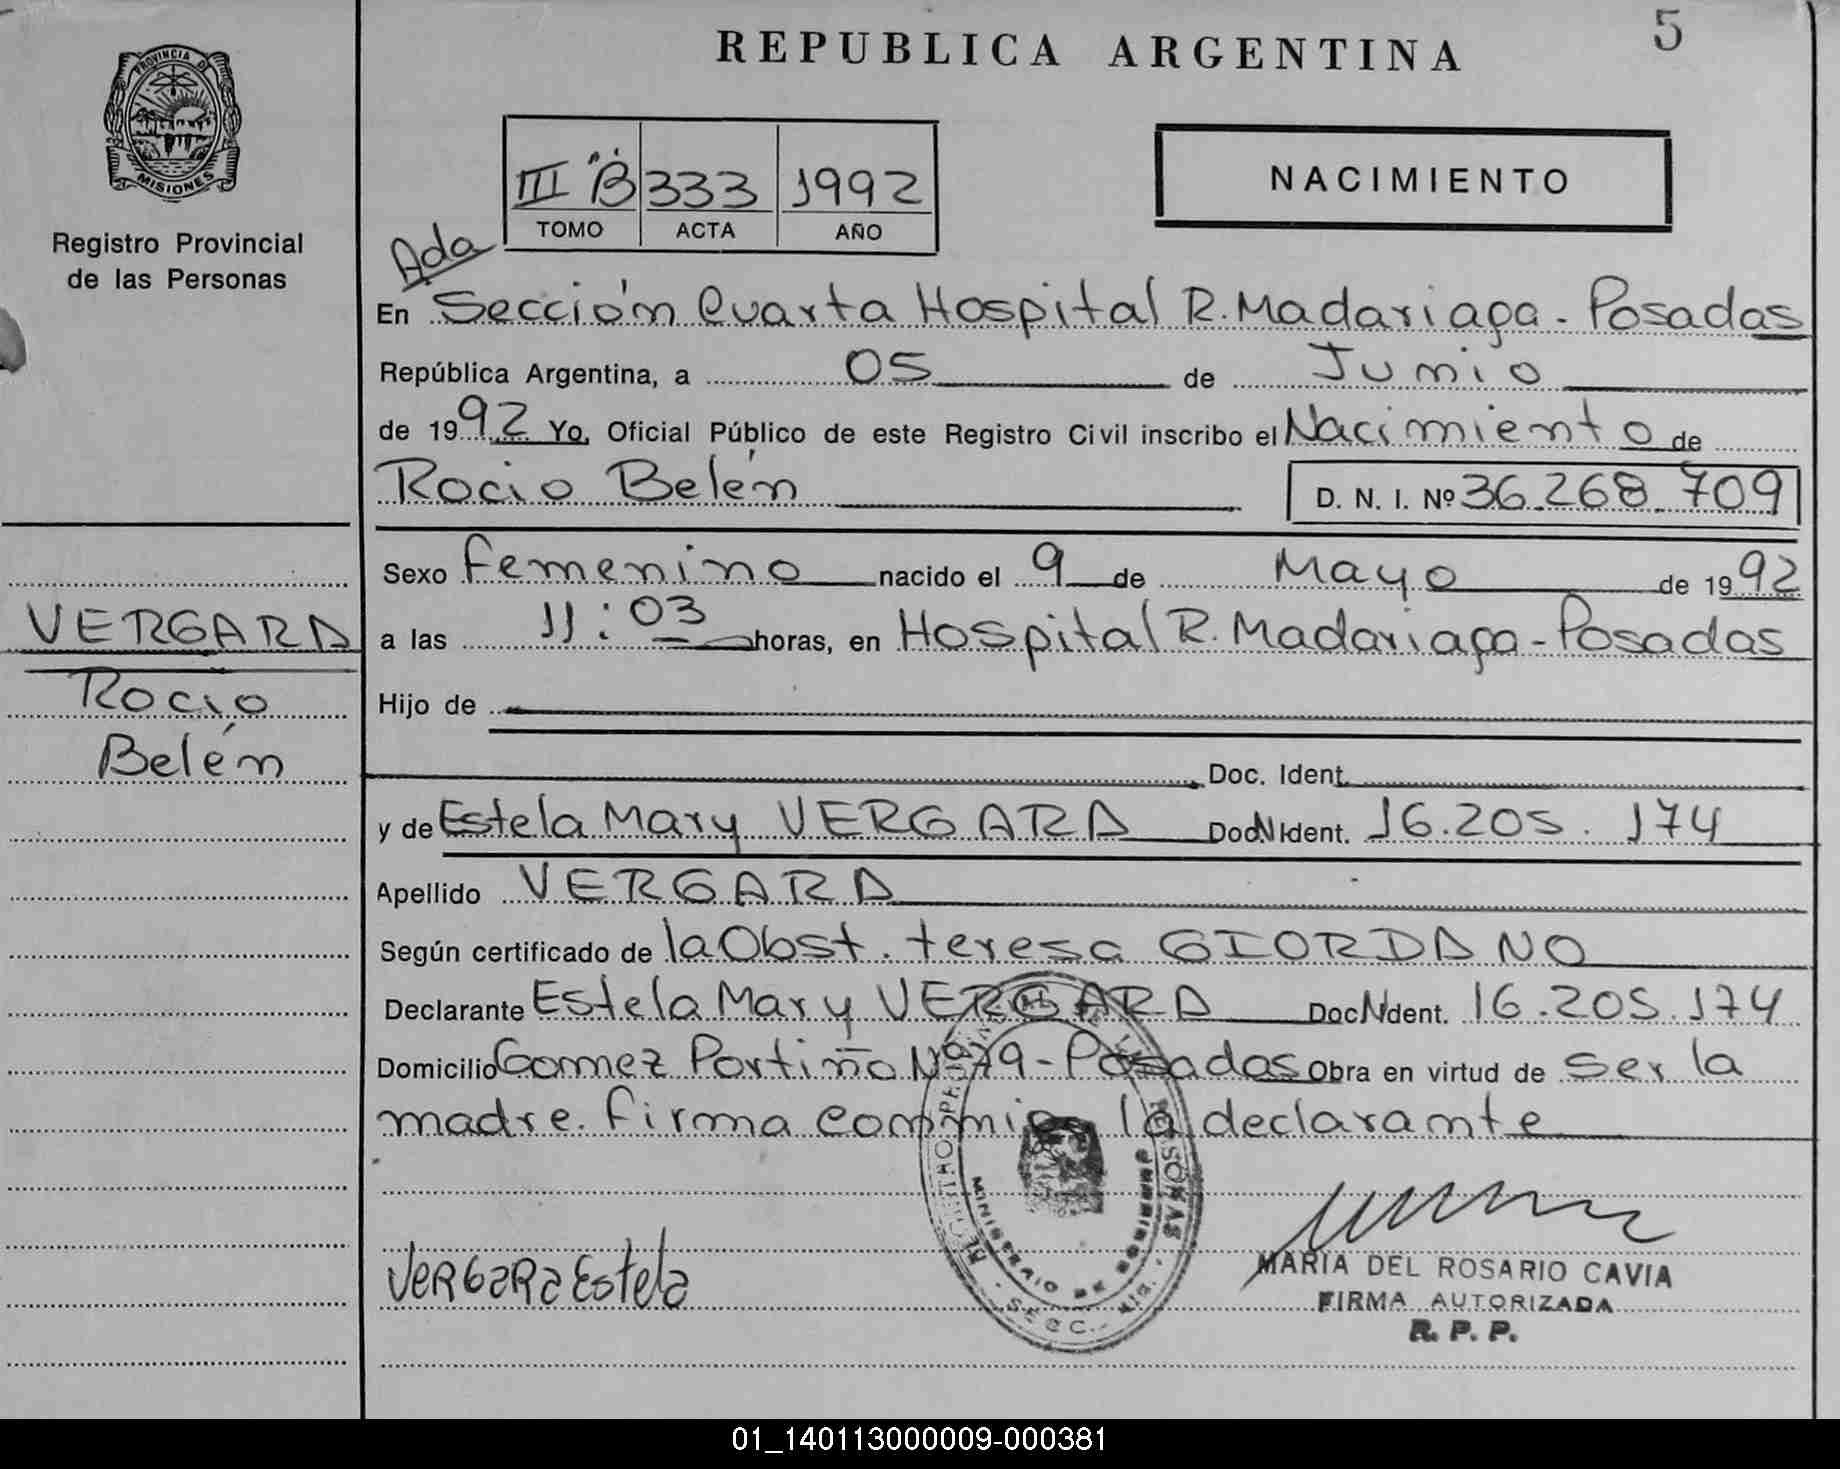 5
REPUBLICA ARGENTINA
PROVINCIA D MISIONES
Registro Provincial
de las Personas
III "B" 333 1992
TOMO ACTA AÑO
NACIMIENTO
Ada
En Sección Cuarta Hospital R. Madariaga - Posadas
República Argentina, a 05 de Junio
de 1992 Yo, Oficial Público de este Registro Civil inscribo el Nacimiento de
Rocio Belén D. N. I. Nº 36.268.709
Sexo Femenino nacido el 9 de Mayo de 1992
a las 11:03 horas, en Hospital R. Madariaga - Posadas
Hijo de
Doc. Ident.
y de Estela Mary VERGARA Doc. Ident. 16.205.174
Apellido VERGARA
Según certificado de la Obst. teresa GIORDANO
Declarante Estela Mary VERGARA Doc. Ident. 16.205.174
Domicilio Gomez Portiño Nº 79 - Posadas Obra en virtud de ser la
madre. firma conmigo la declarante
VERGARA
Rocio
Belén
VERGARA Estela
MINISTERIO DE
SECC.
MARIA DEL ROSARIO CAVIA
FIRMA AUTORIZADA
R. P. P.
01_140113000009-000381